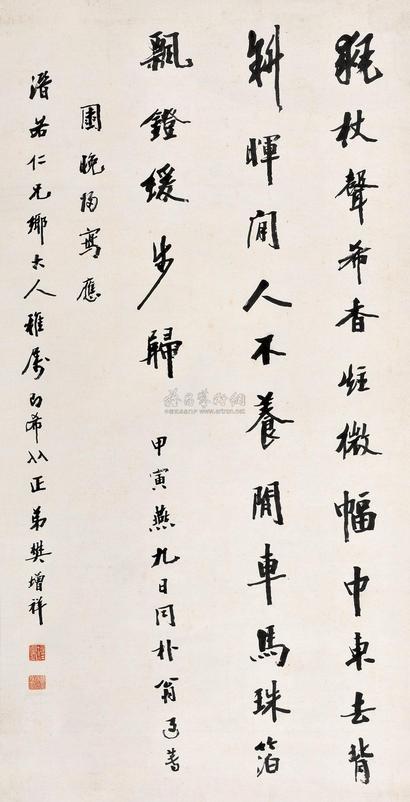 杖聲希香炷微幅巾東去背
斜暉閒人不養閒車馬珠箔
飄鐙緩步歸 甲寅燕九日同朴翁過
園晚歸寫應
潛若仁兄鄉大人雅屬即希入正弟樊增祥